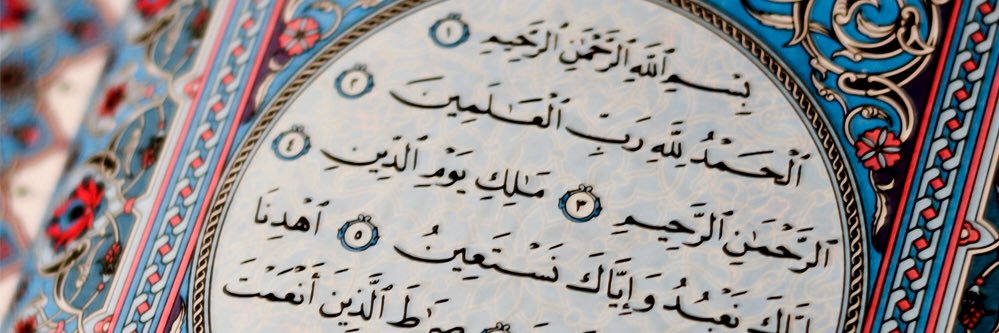 بِسْمِ ٱللَّهِ ٱلرَّحْمَٰنِ ٱلرَّحِيمِ ١
ٱلْحَمْدُ لِلَّهِ رَبِّ ٱلْعَٰلَمِينَ ٢
ٱلرَّحْمَٰنِ ٱلرَّحِيمِ ٣ مَٰلِكِ يَوْمِ ٱلدِّينِ ٤
إِيَّاكَ نَعْبُدُ وَإِيَّاكَ نَسْتَعِينُ ٥ ٱهْدِنَا
صِرَٰطَ ٱلَّذِينَ أَنْعَمْتَ